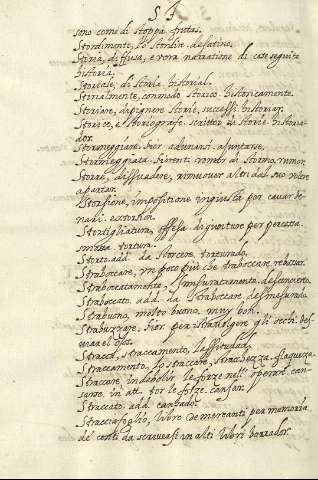 S T
sono come di stoppa. frutas.
Stordimento, lo stordire. desatino.
Storia, diffusa, e vera narratione di cose seguite
historia.
Storiale, di storia. historial.
Storialmente, con modo storico. historicamente.
Storiare, dipignere storie, successi. historiar.
Storico, e storiografo, scrittor di storie. historia-
dor.
Stormeggiare. hier. adunarsi. ajuntarse.
Stormeggiata. hier. rumor di stormo. rumor.
Storre, dissuadere, rimuovere altri dal suo
apartar.
Storsione, impositione ingiusta per cavar de
nari. extorsion.
Stortigliatura, offesa di giunture per percossa
tortura.
Storto. add. da storcere. torturado.
Straboccare, un poco più che traboccar. rebossar.
Strabocatamente, smisuratamente. descomento.
Straboccato. add. da straboccare. desmesurado.
Strabuono, molto buono. muy bon.
Strabuzzare. hier. per stravolgere gli occhi. des-
viar el ojo.
Stracca, straccamento, lassitudine.
Straccamento, lo straccare, stracchezza. flaqueza.
Straccare, indebolir le forze nell' operar. can-
sarse. in att. tor le forze. cansar.
Straccato. add. cansado.
Stracciafoglio, libro de mercanti per memoria
de conti da scriversi in alti libri. borrador.